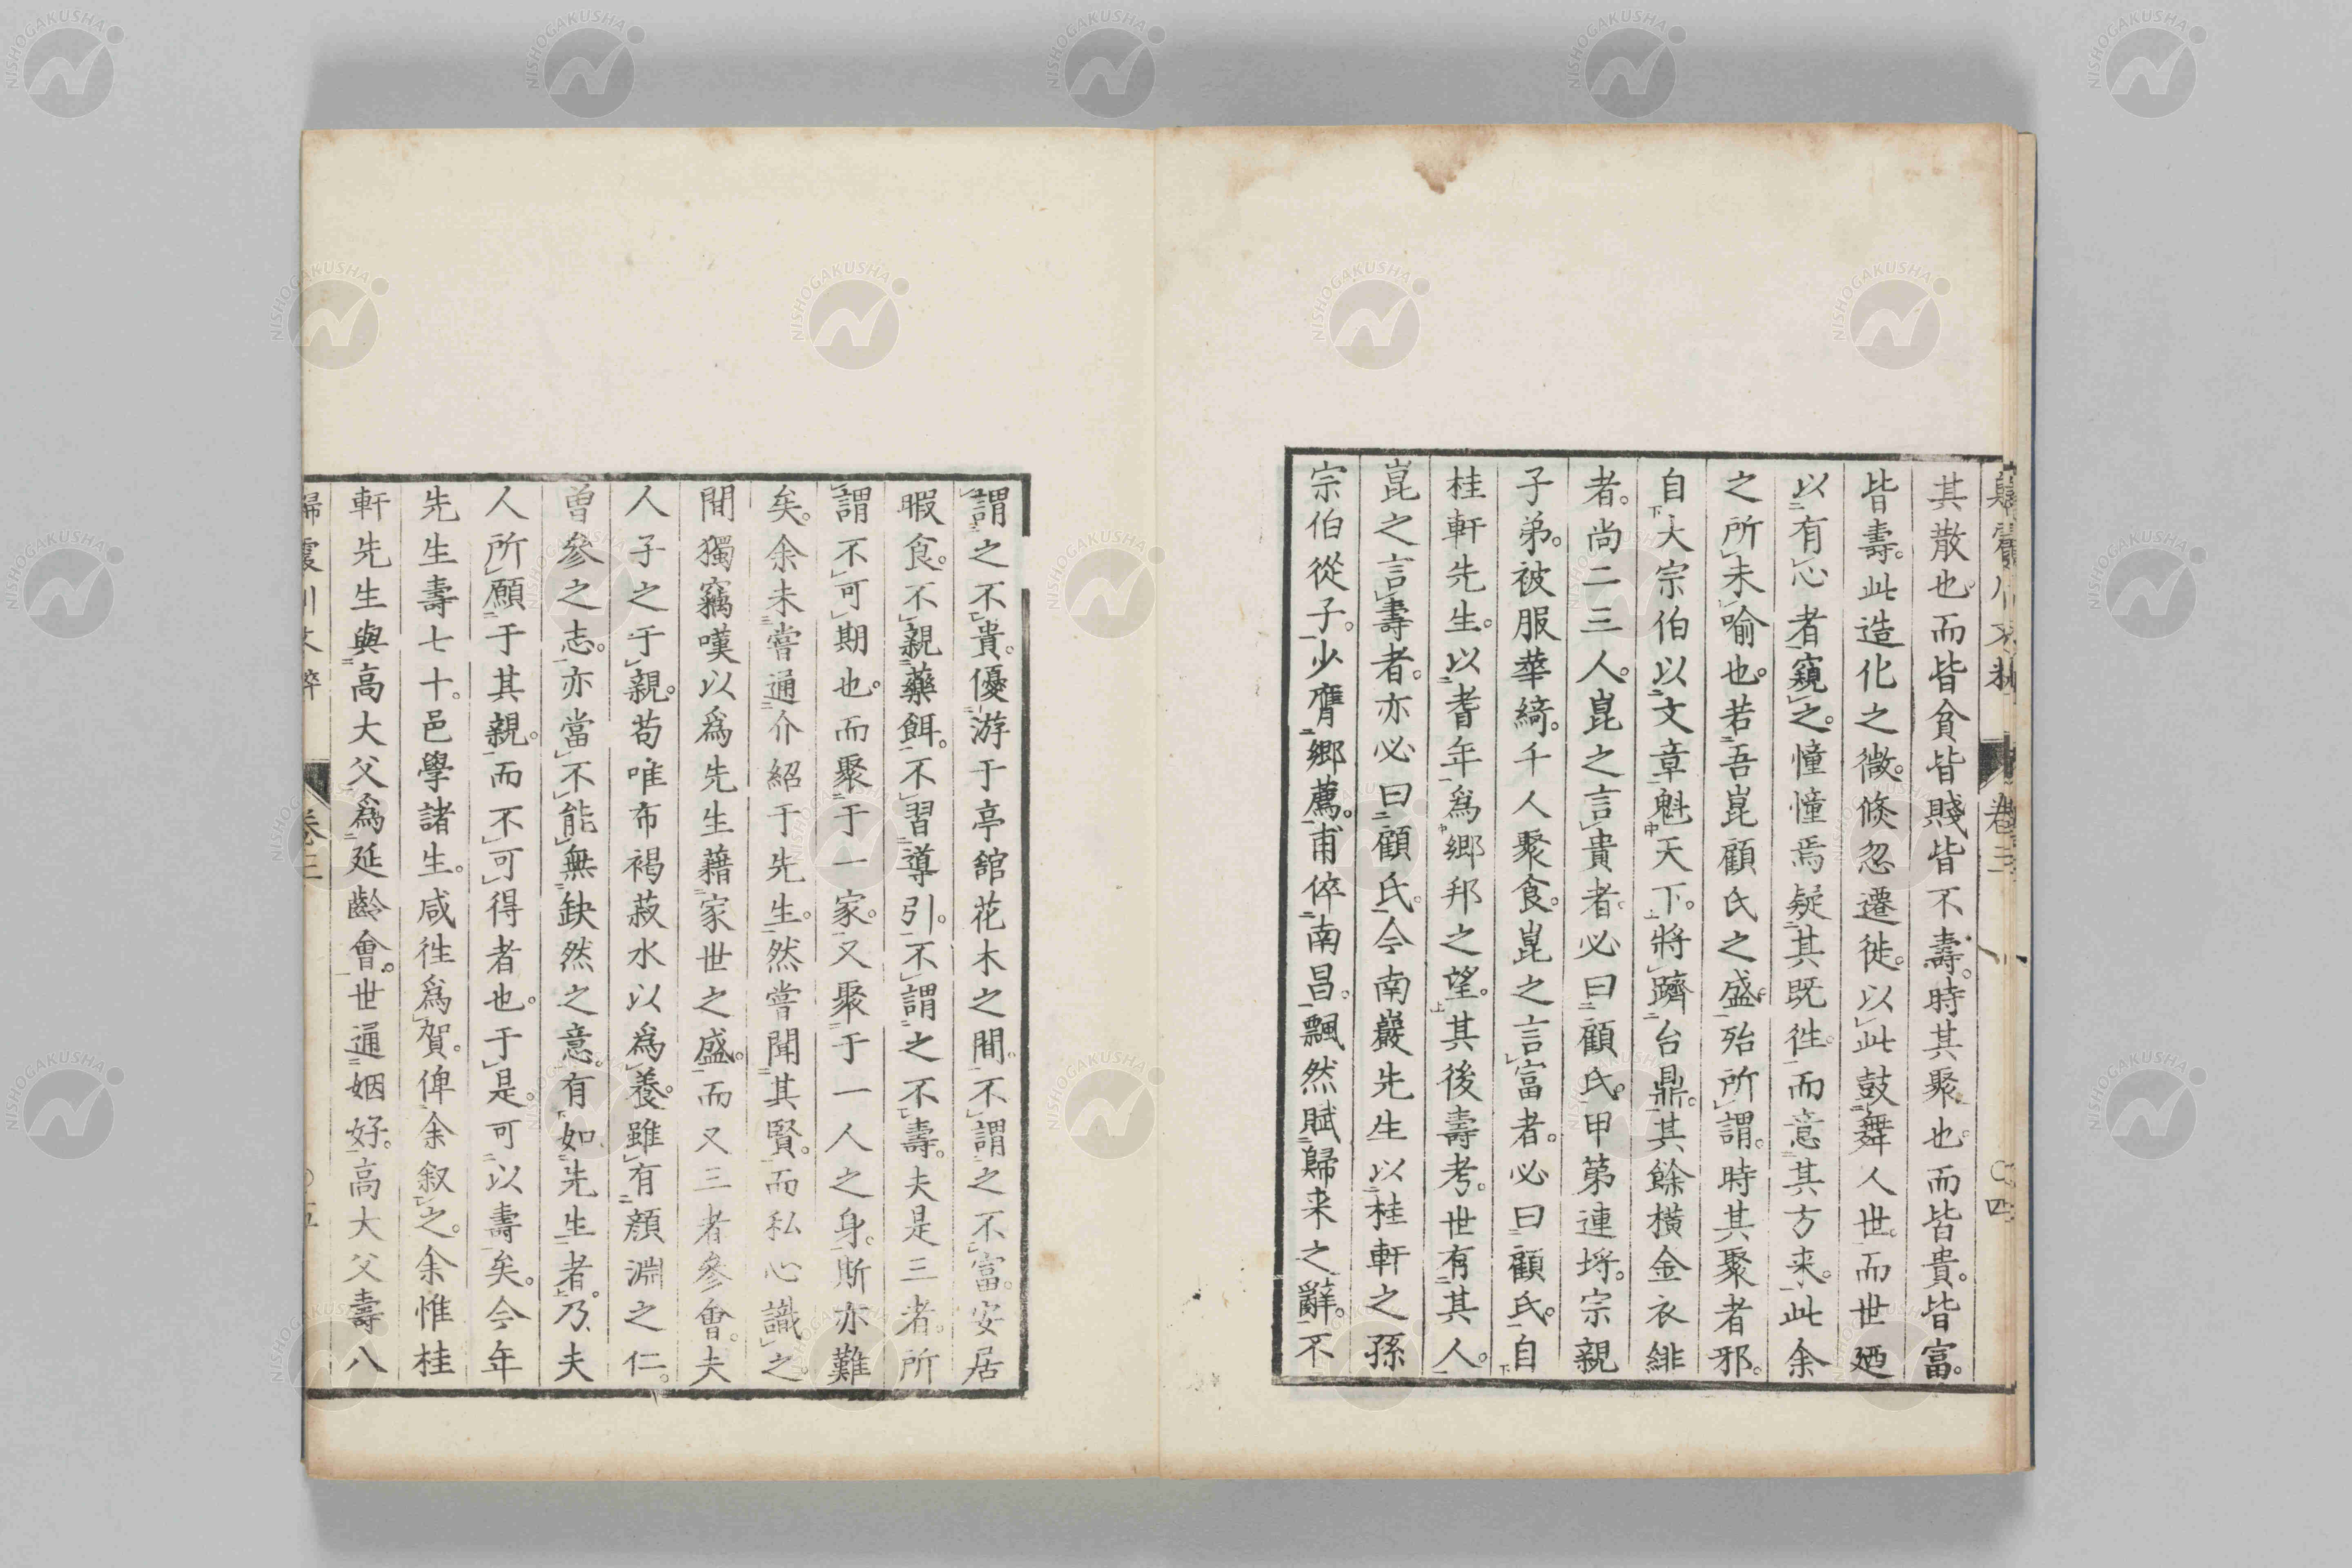 其散也。而皆貧皆賤皆不壽。時其聚也。而皆貴。皆富。
皆壽。此造化之微。倐忽遷徙。以此鼓舞人世。而世廼
以有心者窺之。憧憧焉疑其既徃。而意其方来。此余
之所未喻也。若吾崑顧氏之盛。殆所謂時其聚者邪。
自大宗伯以文章魁天下。將躋台鼎。其餘橫金衣緋
者。尚二三人。崑之言貴者。必曰顧氏。甲第連埒。宗親
子弟。被服華綺。千人聚食。崑之言富者。必曰顧氏。自
桂軒先生。以耆年為鄉邦之望。其後壽考。世有其人。
崑之言壽者。亦必曰顧氏。今南巖先生以桂軒之孫
宗伯從子。少膺鄉薦。甫倅南昌。飄然賦歸来之辭。不
謂之不貴。優游于亭舘花木之間。不謂之不富。安居
暇食。不親藥餌。不習導引。不謂之不壽。夫是三者。所
謂不可期也。而聚于一家。又聚于一人之身。斯亦難
矣。余未嘗通介紹于先生。然嘗聞其賢。而私心識之。
間獨竊嘆以為先生藉家世之盛。而又三者參會。夫
人子之于親。苟唯布褐菽水以為養。雖有顏淵之仁。
曾參之志。亦當不能無缺然之意。有如先生者。乃夫
人所願于其親。而不可得者也。于是。可以壽矣。今年
先生壽七十。邑學諸生。咸徃為賀。俾余叙之。余惟桂
軒先生與高大父為延齡會。世通姻好。高大父壽八
NISHOGAKUSHA